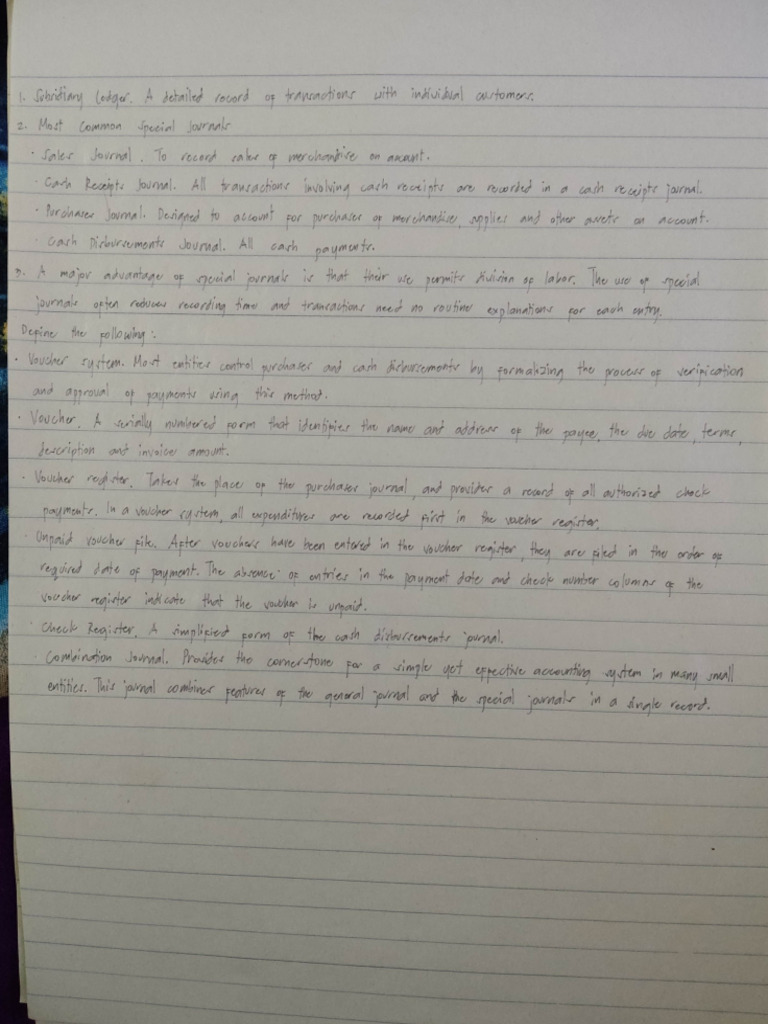 1. Subsidiary Ledger. A detailed record of transactions with individual customers.
2. Most Common Special Journals
· Sales Journal. To record sales of merchandise on account.
· Cash Receipts Journal. All transactions involving cash receipts are recorded in a cash receipts journal.
· Purchases Journal. Designed to account for purchases of merchandise, supplies and other assets on account.
· Cash Disbursements Journal. All cash payments.
3. A major advantage of special journals is that their use permits division of labor. The use of special
journals often reduces recording time and transactions need no routine explanations for each entry.
Define the following:
· Voucher system. Most entities control purchases and cash disbursements by formalizing the process of verification
and approval of payments using this method.
· Voucher. A serially numbered form that identifies the name and address of the payee, the due date, terms,
description and invoice amount.
· Voucher register. Takes the place of the purchases journal, and provides a record of all authorized check
payments. In a voucher system, all expenditures are recorded first in the voucher register.
· Unpaid voucher file. After vouchers have been entered in the voucher register, they are filed in the order of
required date of payment. The absence of entries in the payment date and check number columns of the
voucher register indicate that the voucher is unpaid.
· Check Register. A simplified form of the cash disbursements journal.
· Combination Journal. Provides the cornerstone for a simple yet effective accounting system in many small
entities. This journal combines features of the general journal and the special journals in a single record.